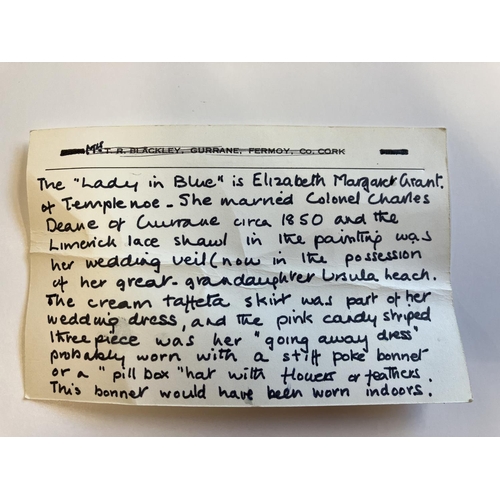 Mrs T. R. BLACKLEY, GURRANE, FERMOY, CO. CORK
The "Lady in Blue" is Elizabeth Margaret Grant.
of Templenoe. She married Colonel Charles
Deane of Gurrane circa 1850 and the
Limerick lace shawl in the painting was
her wedding veil (now in the possession
of her great-grandaughter Ursula Leach.
The cream taffeta skirt was part of her
wedding dress, and the pink candy striped
three piece was her "going away dress"
probably worn with a stiff poke bonnet
or a "pill box" hat with flowers or feathers.
This bonnet would have been worn indoors.